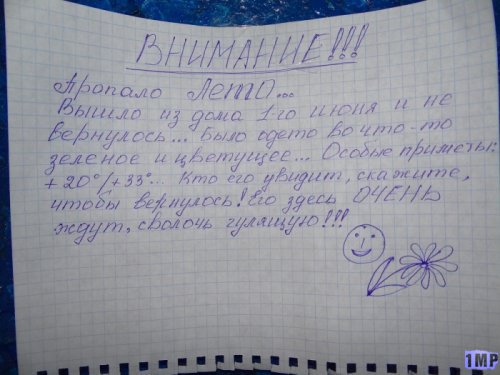 ВНИМАНИЕ!!!
Пропало Лето...
Вышло из дома 1го июня и не
вернулось... Было одето во что-то
зеленое и цветущее... Особые приметы:
+20°/+33°... Кто его увидит, скажите,
чтобы вернулось! Его здесь ОЧЕНЬ
ждут, сволочь гулящую!!!
1MP